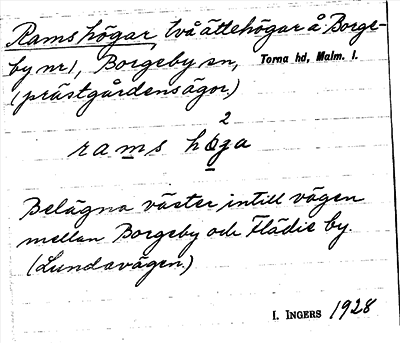 Ramshögar, två ättehögar å Borge-
by nr 1, Borgeby sn, Torna hd, Malm. l.
(prästgårdens ägor.)
2
rams höga
Belägna väster intill vägen
mellan Borgeby och Flädie by.
(Lundavägen.)
I. INGERS 1928